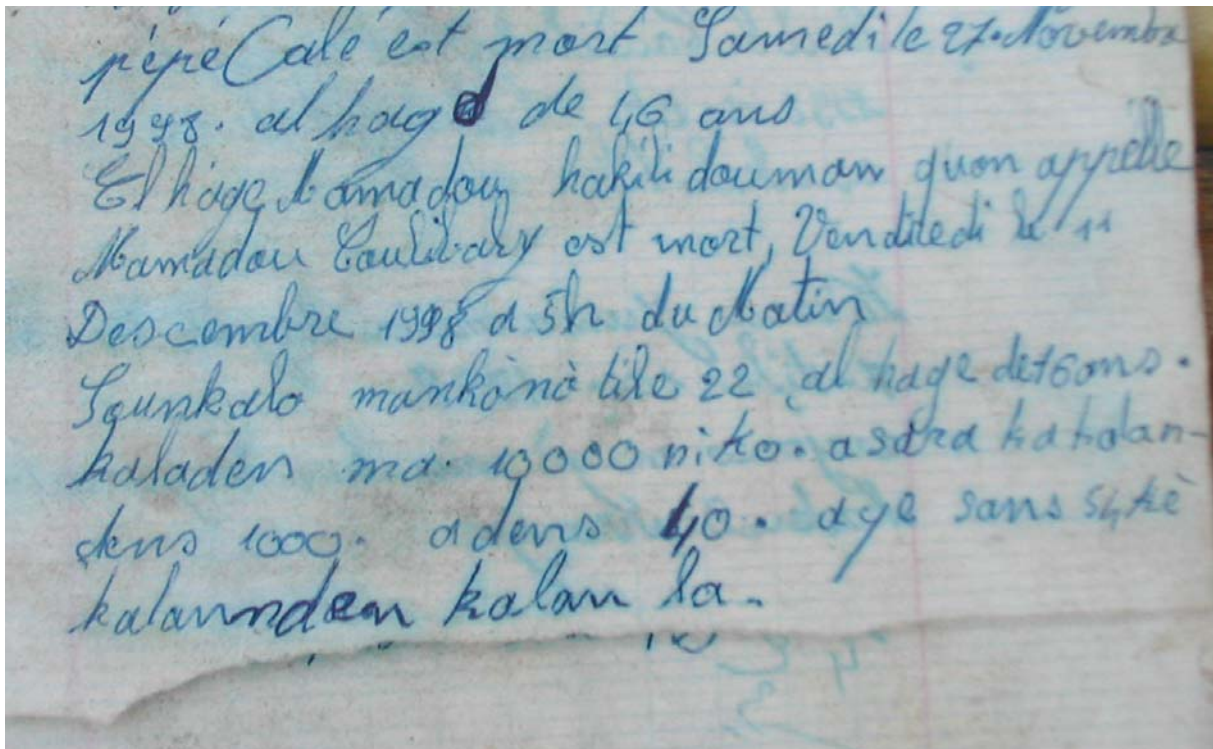 pépé Calé est mort Samedi le 27. Novembre
1998. al hage de 46 ans
El hage Mamadou hakili douman quon appelle
Mamadou Coulibaly est mort, Vendiledi le 11
Descembre 1998 a 5h du Matin
Sounkalo mankànà tile 22 al hage de 76 ans.
kaladen ma. 10000 niko. a sara ka kalan-
dens 1000. a dens 40. a ye sans 54 kè
kalannden kalan la.